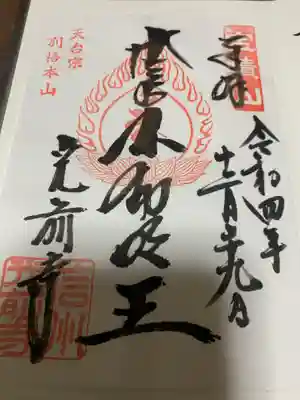 宝積山
奉拝
令和四年
九日
不動明王
天台宗
別格本山
光前寺
信州
光前寺